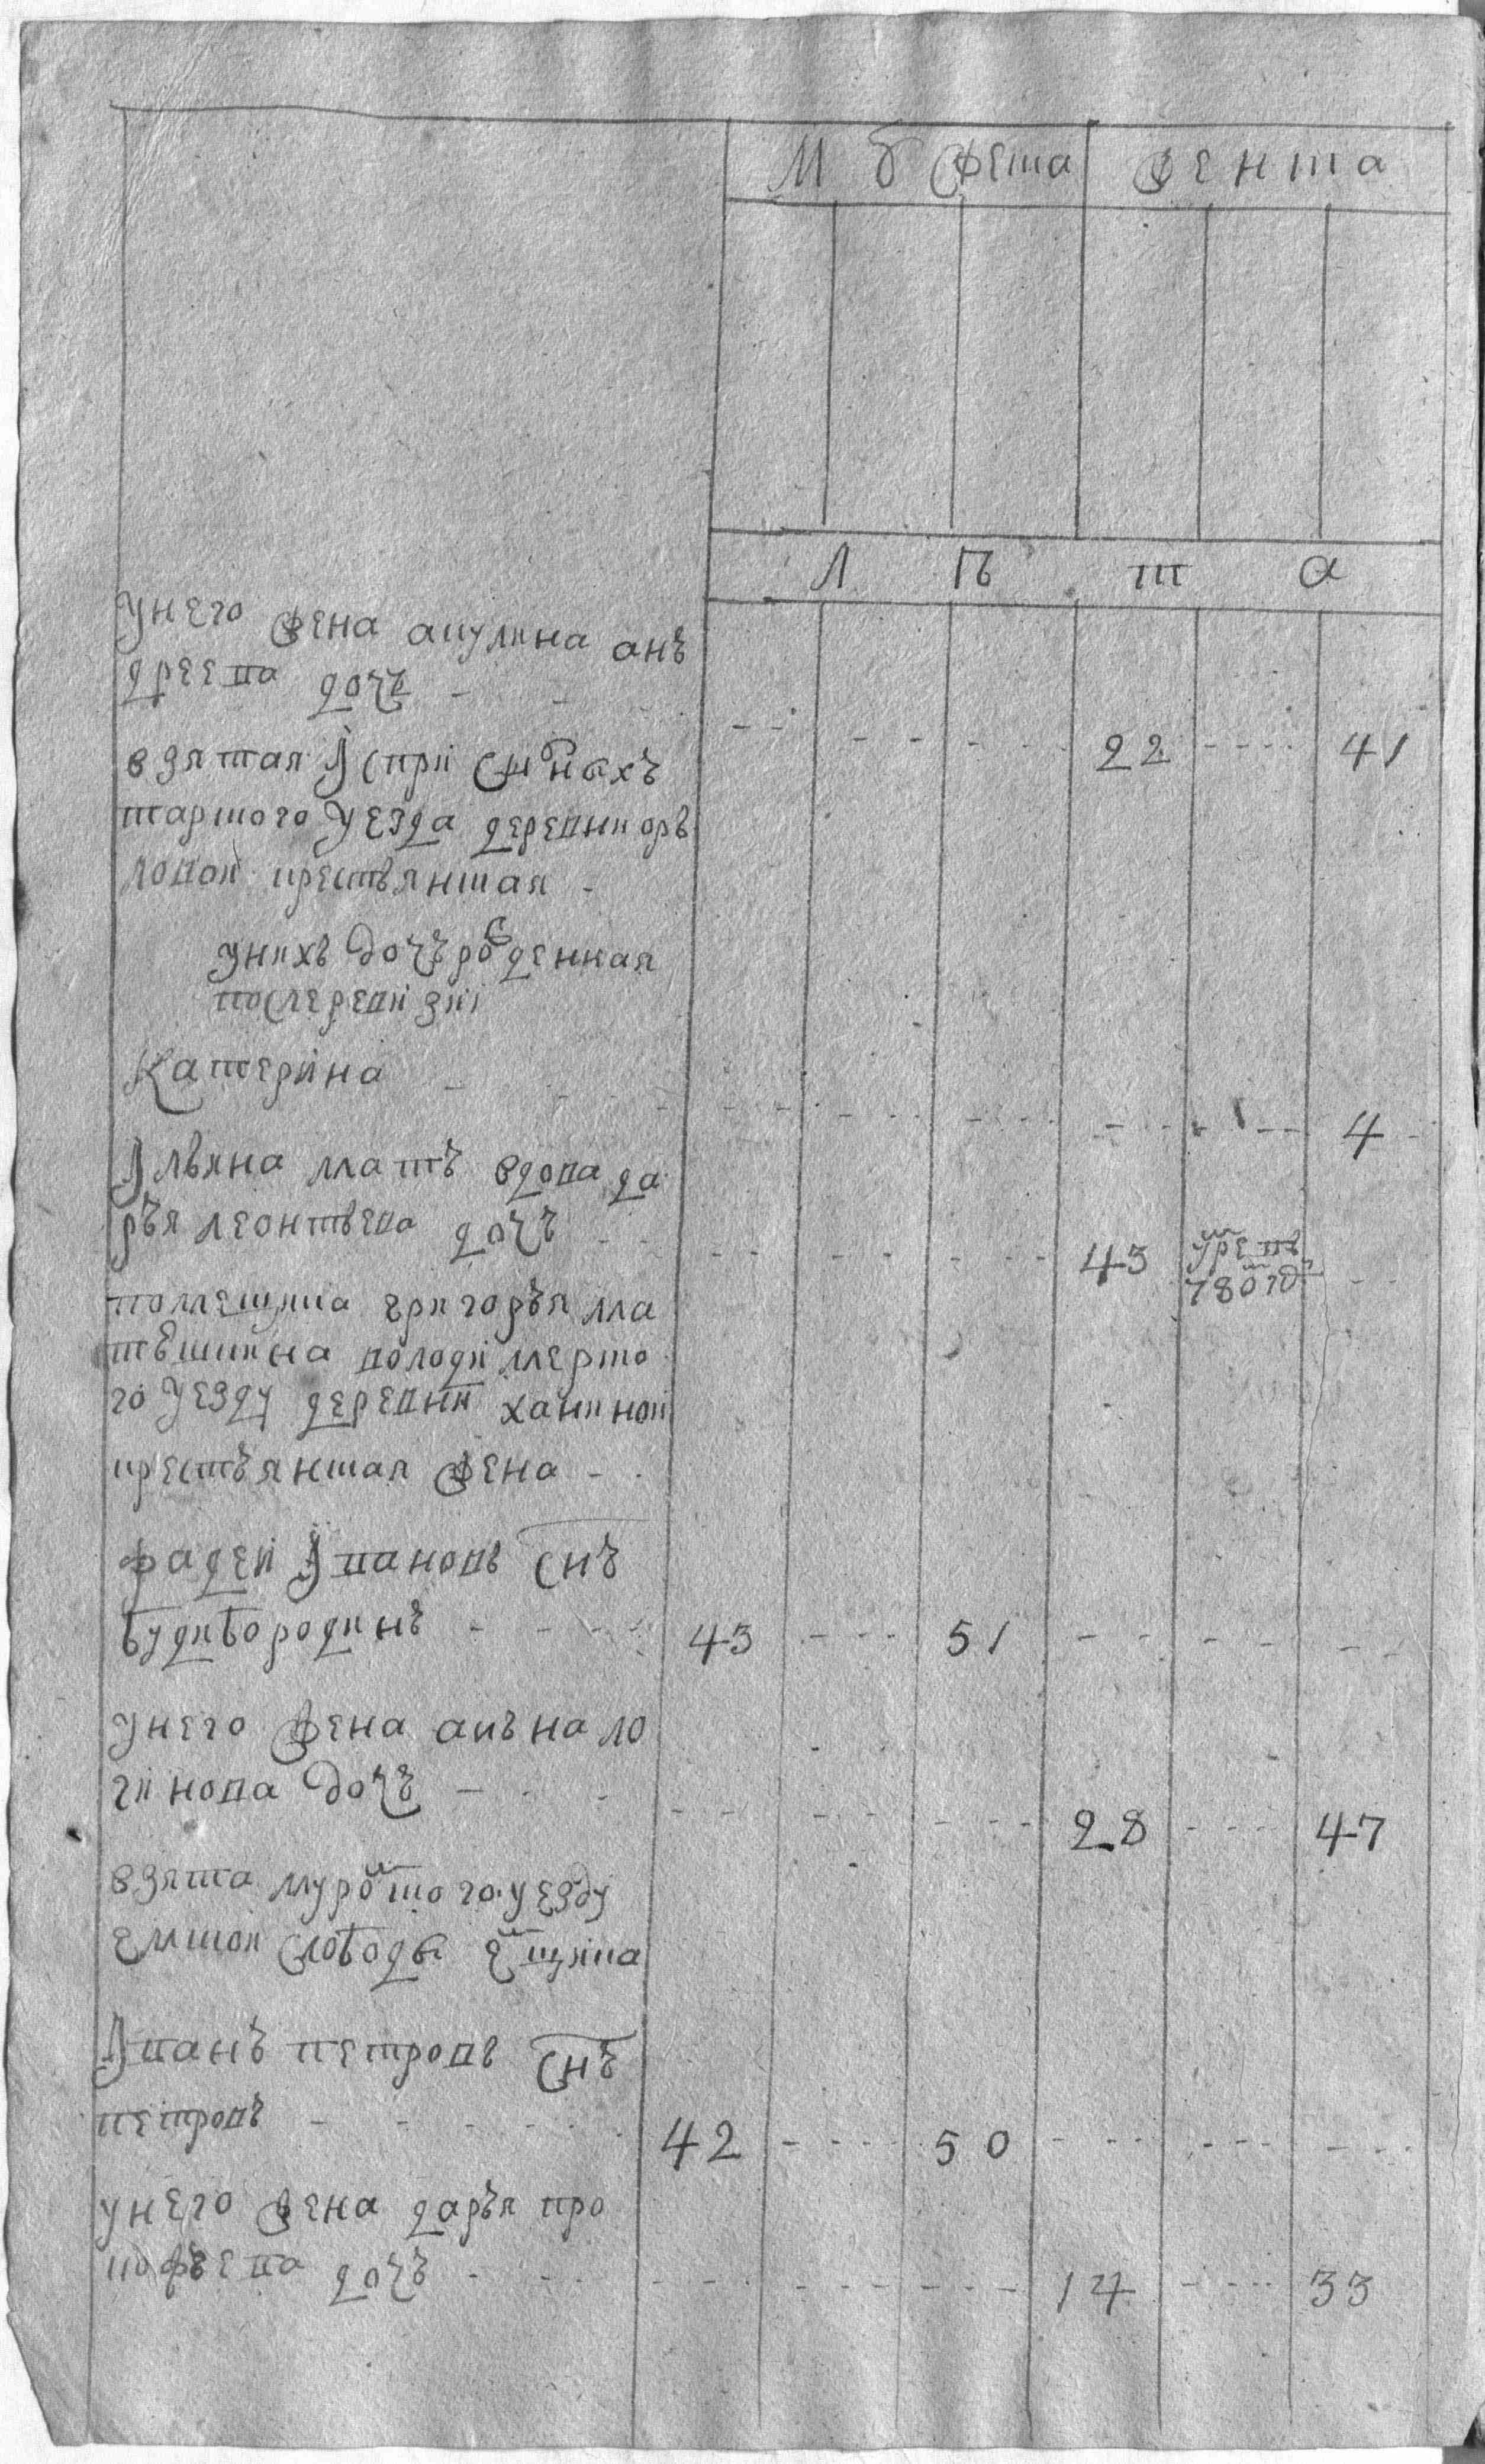 М б жеска женска
Л Е т а
у него жена акулина анъ
дреева дочь - - -
взятая Испри
таршого уезда деревни оръ
ловой крестьянская -
у нихъ дочъ рожденная
после ревизиі
Катерина - - - - 4
Ильина матъ вдова да
ръя леонтьева дочъ - - 43 780 год - -
помещика григоръя ма
тюшкина володимерско
го уезду деревни ханиной
крестъянская жена - -
фадей Ивановъ снъ
будибородинъ - - - 43 - - - 51 - - - -
у него жена анъна ло
гинова дочъ - - - 28 - - - 47
взята муромского уезду
емской слободы емщика
Иванъ петровъ снъ
петровъ - - - 42 - - - 50 - - - -
у него жена даръя про
кофъева дочъ - - - 14 - - - 33
22 - - - 41